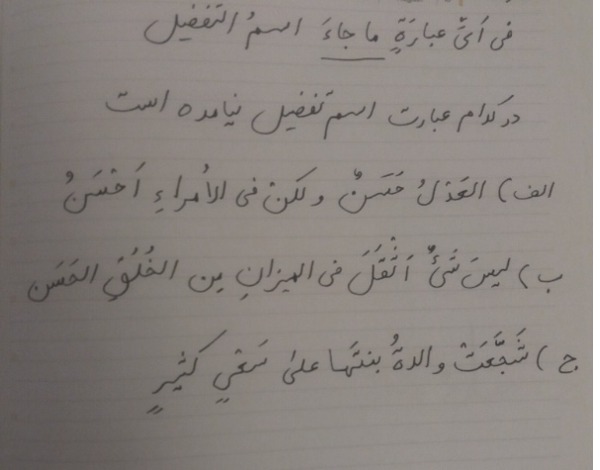 فی اَیِّ عبارَةٍ ما جاءَ اسمُ التفضیل
در کدام عبارت اسم تفضیل نیامده است
الف) العَدْلُ حَسَنٌ ولکنْ فی الاُمراءِ اَحْسَنُ
ب) لیسَ شَیءٌ اَثْقَلَ فی المیزانِ مِن الخُلُقِ الحَسَن
ج) شَجَّعَتْ والدةُ بنتَها علیٰ سَعْیٍ کثیرٍ